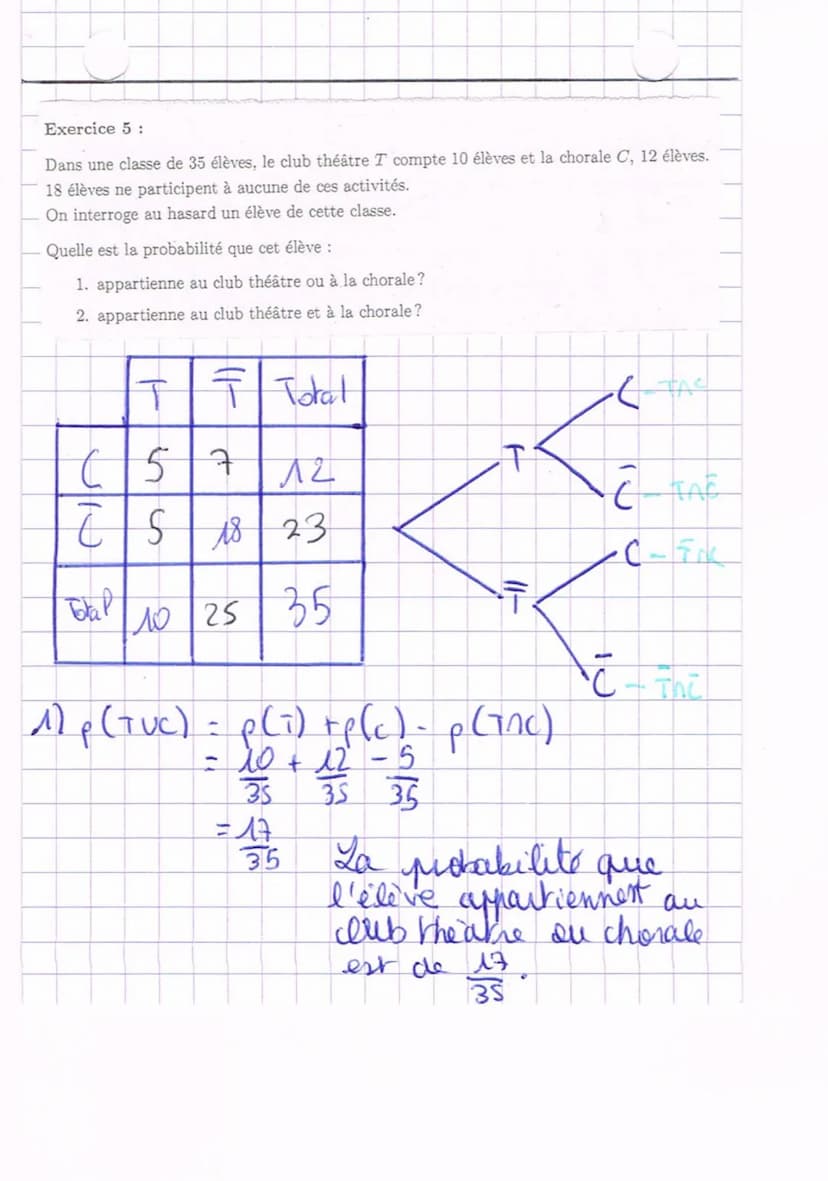 Exercice 5 :
Dans une classe de 35 élèves, le club théâtre T compte 10 élèves et la chorale C, 12 élèves.
18 élèves ne participent à aucune de ces activités.
On interroge au hasard un élève de cette classe.
Quelle est la probabilité que cet élève :
1. appartienne au club théâtre ou à la chorale ?
2. appartienne au club théâtre et à la chorale ?
T T̅ Total
C 5 7 12
C̅ 5 18 23
Total 10 25 35
C - T∩C
T
C̅ - T∩C̅
C - T̅∩C
T̅
C̅ - T̅∩C̅
1) p(T∪C) = p(T) + p(C) - p(T∩C)
= 10/35 + 12/35 - 5/35
= 17/35
La probabilité que
l'élève appartiennent au
club théâtre ou chorale
est de 17/35.